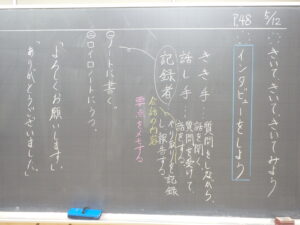 5/12
P.48
きいて、きいて、きいてみよう
インタビューをしよう
きき手…質問をしながら、
話を聞く。
話し手…質問を受けて
話をする。
記録者…やり取りを記録
し、報告する。
会話の内容
要点をメモする
㊀ノートに書く。
㊁ロイロノートにうつ。
「よろしくお願いします。」
「ありがとうございました。」